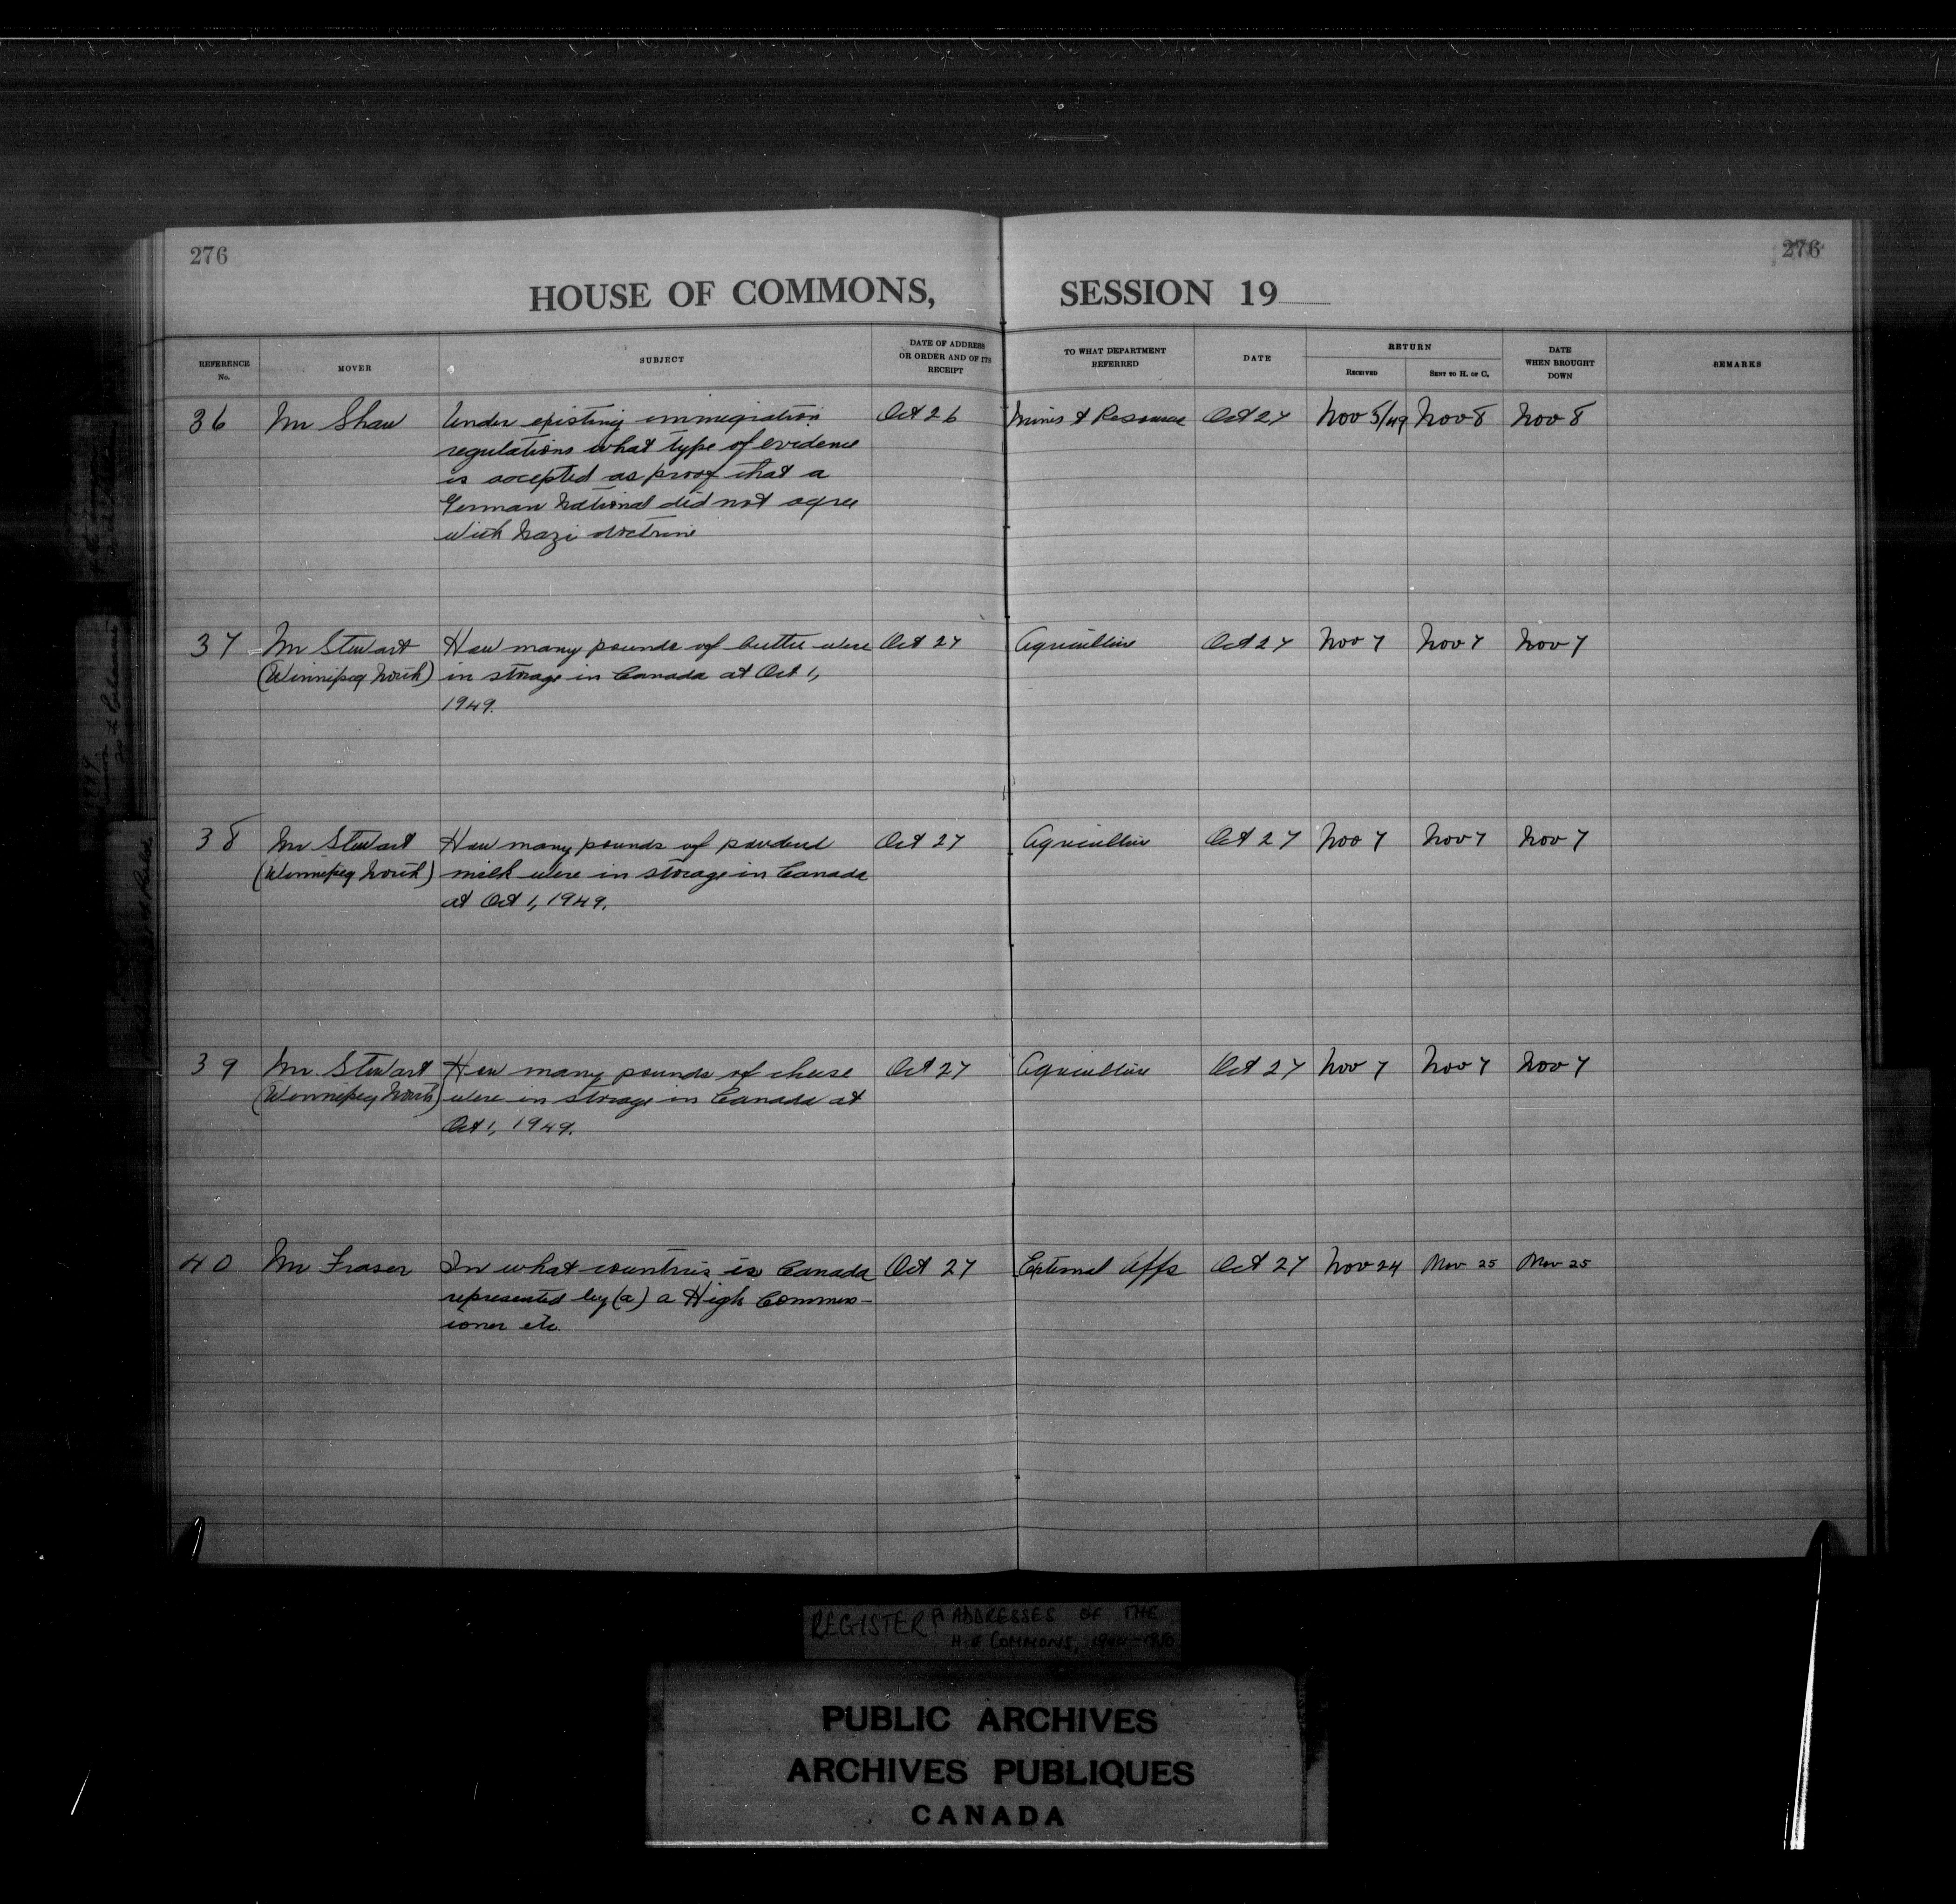 276
276
HOUSE OF COMMONS, SESSION 19
REFERENCE No.
MOVER
SUBJECT
DATE OF ADDRESS OR ORDER AND OF ITS RECEIPT
TO WHAT DEPARTMENT REFERRED
DATE
RETURN
RECEIVED
SENT TO H. OF C.
DATE WHEN BROUGHT DOWN
REMARKS
36 Mr Shaw Under existing immigration Oct 26 Mines & Resource Oct 27 Nov 5/49 Nov 8 Nov 8
regulations what type of evidence
is accepted as proof that a
German National did not agree
with Nazi doctrine
37 Mr Stewart How many pounds of butter were Oct 27 Agriculture Oct 27 Nov 7 Nov 7 Nov 7
(Winnipeg North) in storage in Canada at Oct 1,
1949.
38 Mr Stewart How many pounds of powdered Oct 27 Agriculture Oct 27 Nov 7 Nov 7 Nov 7
(Winnipeg North) milk were in storage in Canada
at Oct 1, 1949.
39 Mr Stewart How many pounds of cheese Oct 27 Agriculture Oct 27 Nov 7 Nov 7 Nov 7
(Winnipeg North) were in storage in Canada at
Oct 1, 1949.
40 Mr Fraser In what countries is Canada Oct 27 External Affs Oct 27 Nov 24 Nov 25 Nov 25
represented by (a) a High Commiss-
ioner etc.
REGISTER OF ADDRESSES OF THE
H. of COMMONS, 1944-1950
PUBLIC ARCHIVES
ARCHIVES PUBLIQUES
CANADA